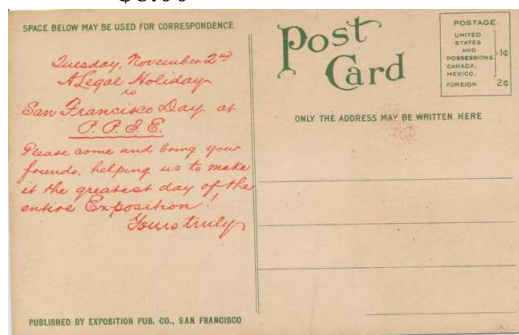 SPACE BELOW MAY BE USED FOR CORRESPONDENCE
Tuesday, November 2nd
A Legal Holiday
is
San Francisco Day at
P. P. I. E.
Please come and bring your
friends, helping us to make
it the greatest day of the
entire Exposition!
Yours truly
PUBLISHED BY EXPOSITION PUB. CO., SAN FRANCISCO
Post
Card
POSTAGE:
UNITED
STATES
AND
POSSESSIONS, 1¢
CANADA,
MEXICO,
FOREIGN 2¢
ONLY THE ADDRESS MAY BE WRITTEN HERE